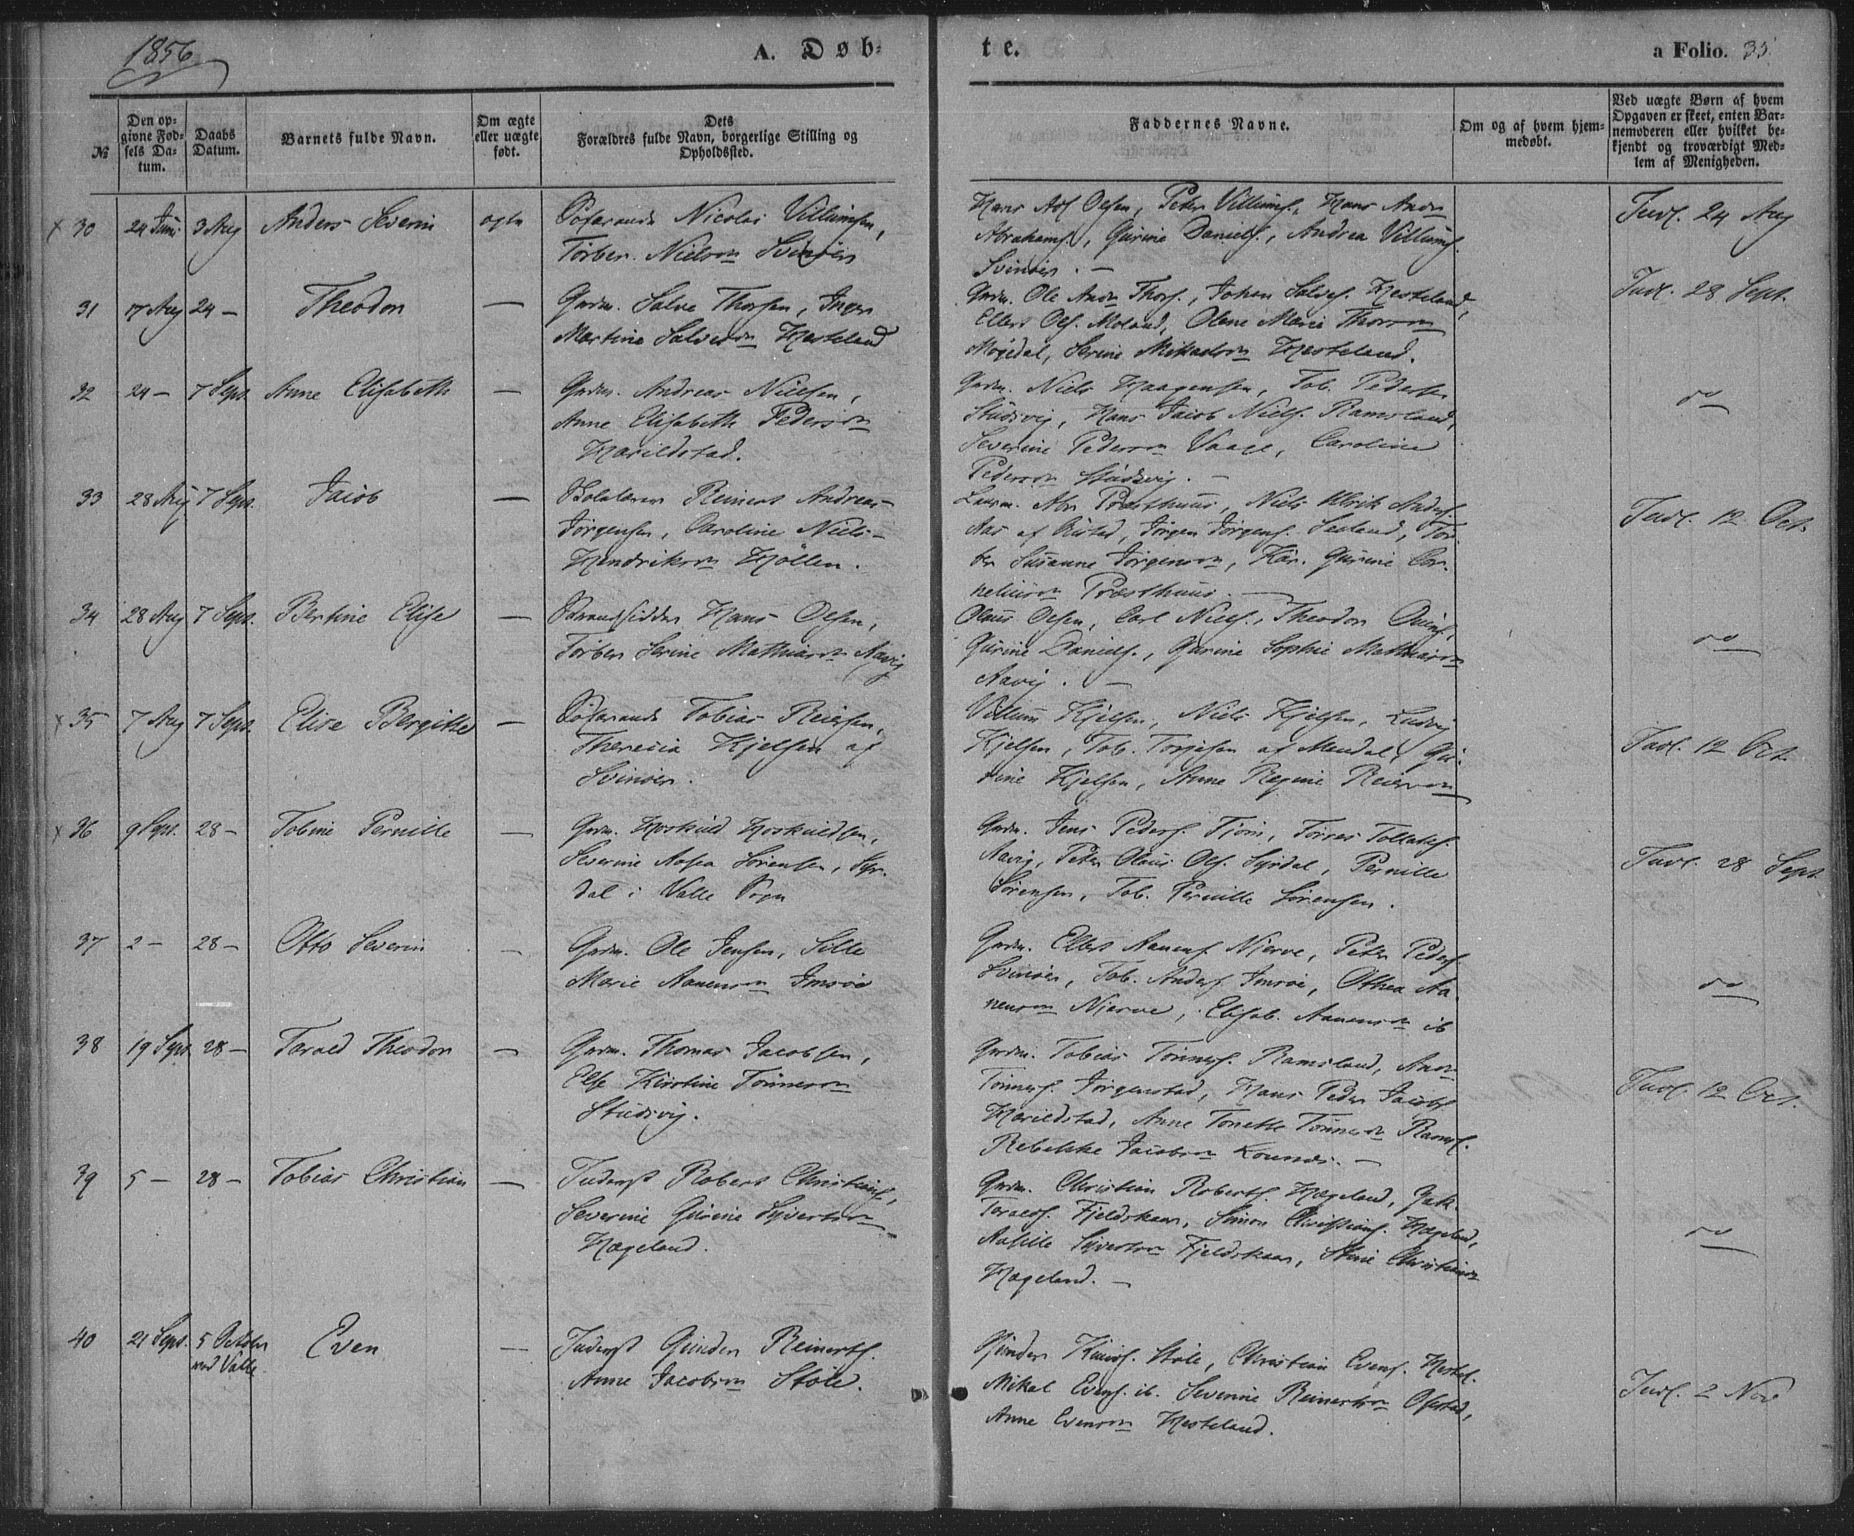 1856
A. Døb-
te.
a Folio. 35
№
Den op-
givne Fød-
sels Da-
tum.
Daabs
Datum.
Barnets fulde Navn.
Om ægte
eller uægte
født.
Dets
Forældres fulde Navn, borgerlige Stilling og
Opholdssted.
Faddernes Navne.
Om og af hvem hjem-
medøbt.
Ved uægte Børn af hvem
Opgaven er skeet, enten Bar-
nemoderen eller hvilket be-
kjendt og troværdigt Med-
lem af Menigheden.
x 30 24 Juni 3 Aug Anders Severin ægte
Søfarende Nicolai Villumsen,
Torber. Nielsen Svinøer
Hans Ads Olsen, Peter Villums., Hans Andr.
Abrahams., Gurine Daniels., Andrea Villums.
Svinøer. —
Indl. 24 Aug
31 17 Aug 24 — Theodor —
Grdm. Salve Thorsen, Inger
Martine Salvesen Hesteland
Grdm. Ole Andr. Thors., Johan Salves. Hesteland,
Ellert Ols. Moland, Olene Marie Thorsen
Møgedal, Serine Mikaelsen Hesteland.
Indl. 28 Sept.
32 24 — 7 Sept. Anne Elisabeth —
Grdm. Andreas Nielsen,
Anne Elisabeth Pedersen
Harildstad.
Grdm. Niels Haagensen, Tob. Peders.
Studsvig, Hans Jacob Niels. Ramsland,
Severine Pedersen Vaage, Caroline
Pedersen Studsvig. —
do
33 28 Aug 7 Sept. Jacob —
Skolelærer Reinert Andreas
Jörgensen, Caroline Niels-
Hendriksen Hollen.
Lensm. Abr Præsthuus, Niels Ulrik Anders.
Aas af Øisted, Jörgen Jörgens. Sealand, Tor-
ber Susanne Jörgensen, Kar. Gurine Cor-
neliusen Præsthuus. —
Indl. 12 Oct.
34 28 Aug 7 Sept. Bertine Elise —
Strandsidder Hans Olsen,
Torber Serine Mathiasen Aavig
Olaus Olsen, Carl Niels., Theodor
Gurine Daniels., Gurine Sophie Mathiasen
Aavig. —
do
x 35 7 Aug 7 Sept. Elise Bergitte —
Søfarende Tobias Reiersen,
Theresia Kjelsen af
Svinøer.
Villum Kjelsen, Niels Kjelsen, Ludvig
Kjelsen, Tob. Torjesen af Mandal, Gu-
rine Kjelsen, Anne Regine Reiersen
Indl. 12 Oct.
x 36 9 Sept. 28 — Tobine Pernille —
Grdm. Hoskuld Hoskuldsen,
Severine Aasea Sörensen, Syr-
dal i Valle Sogn
Grdm. Jens Peders. Tjom, Torres Tollaks.
Aavig, Peter Olaus Ols. Syrdal, Pernille
Sörensen, Tob. Pernille Sörensen.
Indl. 28 Sept
37 2 — 28 — Otto Severin —
Grdm. Ole Jensen, Sille
Marie Aanensen Imsöe
Grdm. Ellert Aanens. Njerve, Peter Peders.
Svinøer, Tob. Anders. Imsöe, Othea Aa-
nensen Njerve, Elisab. Aanensen ib
do
38 19 Sept. 28 — Tarald Theodor —
Grdm. Thomas Jacobsen,
Else Kirstine Tönnesen
Studsvig.
Grdm. Tobias Tönnes. Ramsland, Andr.
Tönnes. Jörgenstad, Hans Peder Jacobs.
Harildstad, Anne Tonette Tönnesen Ramsl.
Rebekke Jacobsen Kounæs. —
Indl. 12 Oct.
39 5 — 28 — Tobias Christian —
Inderst Robert Christians.,
Severine Gurine Syvertsen
Hægeland.
Grdm. Christian Roberts. Hægeland, Jak.
Taralds. Fjeldskaar, Simon Christians. Hægeland,
Aasille Syvertsen Fjeldskaar, Stine Christiansen
Hægeland. —
do
40 21 Sept. 5 October
ved Valle. Even —
Inderst Gunder Reinerts.
Anne Jacobsen Støle.
Gunder Knuds. Støle, Christian Evens. Hestel.
Mikal Evens. ib. Severine Reinertsen Ofstad,
Anne Evensen Hesteland.
Indl. 2 Nov